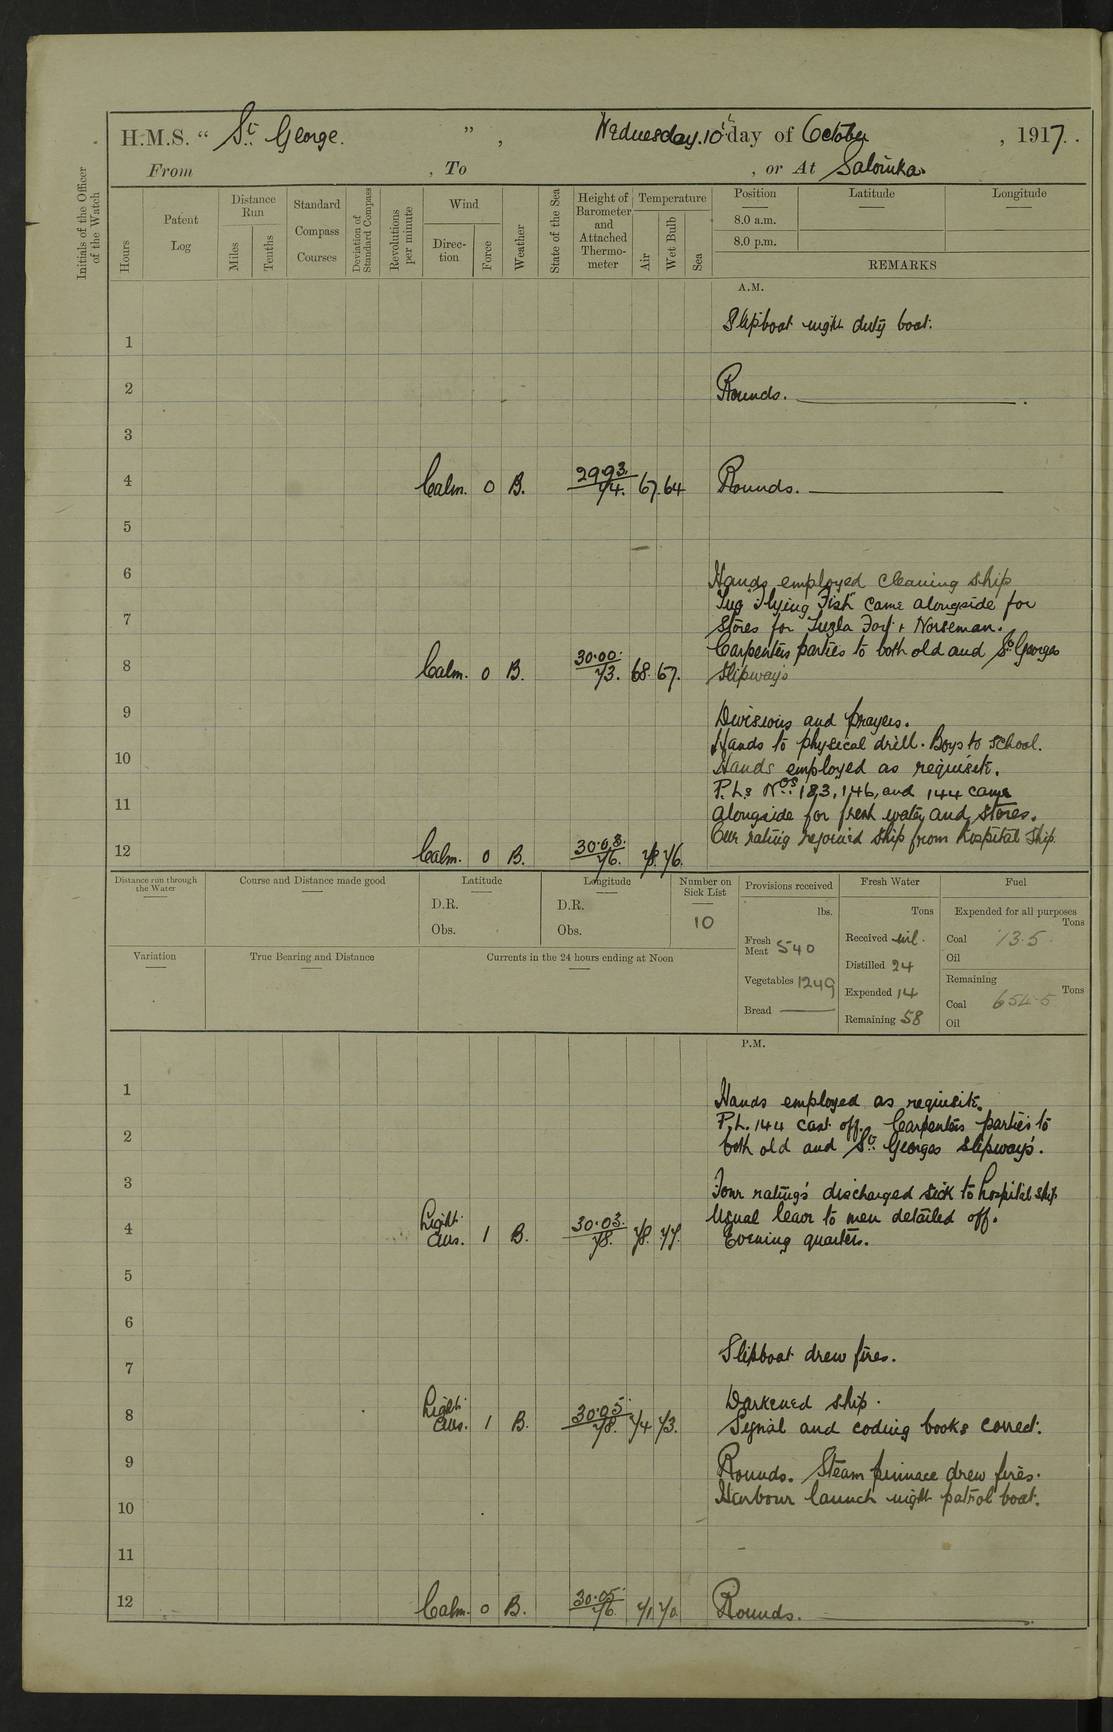 H.M.S. " St George. ", Wednesday, 10th day of October, 1917.
From , To , or At Salonika.
Initials of the Officer of the Watch
Hours
Patent Log
Distance Run
Miles
Tenths
Standard Compass Courses
Deviation of Standard Compass
Revolutions per minute
Wind
Direc-tion
Force
Weather
State of the Sea
Height of Barometer and Attached Thermo-meter
Temperature
Air
Wet Bulb
Sea
Position
Latitude
Longitude
8.0 a.m.
8.0 p.m.
REMARKS
A.M.
1 Slipboat night duty boat.
2 Rounds.
3
4 Calm. 0 B. 29.93. 74. 67. 64 Rounds.
5
6 Hands employed cleaning ship
Tug "Flying Fish" came alongside for
7 Stores for Tuzla Fort + Norseman.
Carpenters parties to both old and St Georges
8 Calm. 0 B. 30.00. 73. 68. 67. slipways
9 Divisions and prayers.
Hands to physical drill. Boys to school.
10 Hands employed as requisite.
P.Ls Nos 183, 146, and 144 came
11 alongside for fresh water and stores.
One rating rejoined ship from hospital ship
12 Calm. 0 B. 30.03. 76. 78. 76.
Distance run through the Water
Course and Distance made good
Latitude
D.R.
Obs.
Longitude
D.R.
Obs.
Number on Sick List
10
Provisions received
lbs.
Fresh Meat 540
Vegetables 1249
Bread
Fresh Water
Tons
Received nil.
Distilled 24
Expended 14
Remaining 58
Fuel
Expended for all purposes
Tons
Coal 13.5
Oil
Remaining
Tons
Coal 654.5
Oil
Variation
True Bearing and Distance
Currents in the 24 hours ending at Noon
P.M.
1 Hands employed as requisite.
P.L. 144 cast off. Carpenters parties to
2 both old and St Georges slipways.
3 Four rating's discharged sick to hospital ship
Usual leave to men detailed off.
4 Light airs. 1 B. 30.03. 78. 78. 77. Evening quarters.
5
6
7 Slipboat drew fires.
Darkened ship.
8 Light airs. 1 B. 30.05. 78. 74 73. Signal and coding books correct.
9 Rounds. Steam pinnace drew fires.
10 Harbour launch night patrol boat.
11
12 Calm. 0 B. 30.05. 76. 71 70. Rounds.